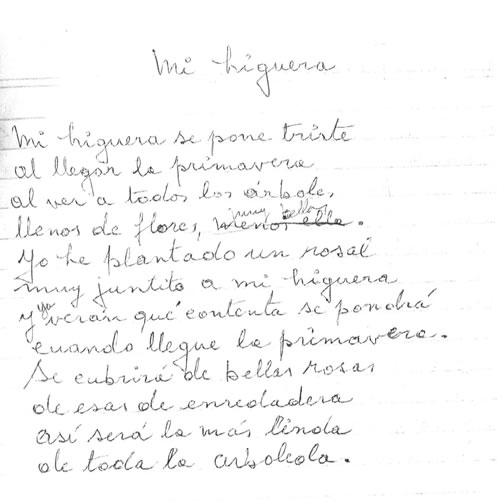 Mi higuera
Mi higuera se pone triste
al llegar la primavera
al ver a todos los árboles,
llenos de flores, menos ella.
muy bellas
Yo he plantado un rosal
muy juntito a mi higuera
y ya verán qué contenta se pondrá
cuando llegue la primavera.
Se cubrirá de bellas rosas
de esas de enredadera
así será la más linda
de toda la arboleola.